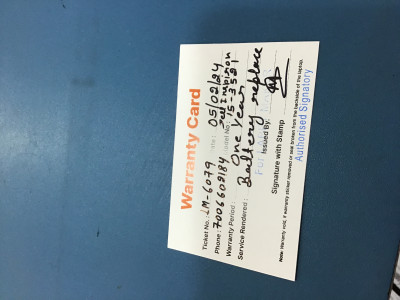 Warranty Card
Ticket No.: LM-6079 Date: 05/02/24
Phone: 7006609184 Model No: 15-3521
Warranty Period: One Year
Service Rendered: Battery replace
For Issued By:
Signature with Stamp
Authorised Signatory
Note: Warranty void, if warranty sticker removed or seal broken from the backside of the laptop.